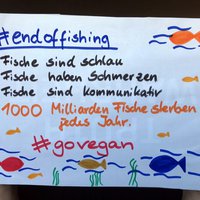 #endoffishing
Fische sind schlau
Fische haben Schmerzen
Fische sind kommunikativ
1000 Milliarden Fische sterben
jedes Jahr.
#govegan